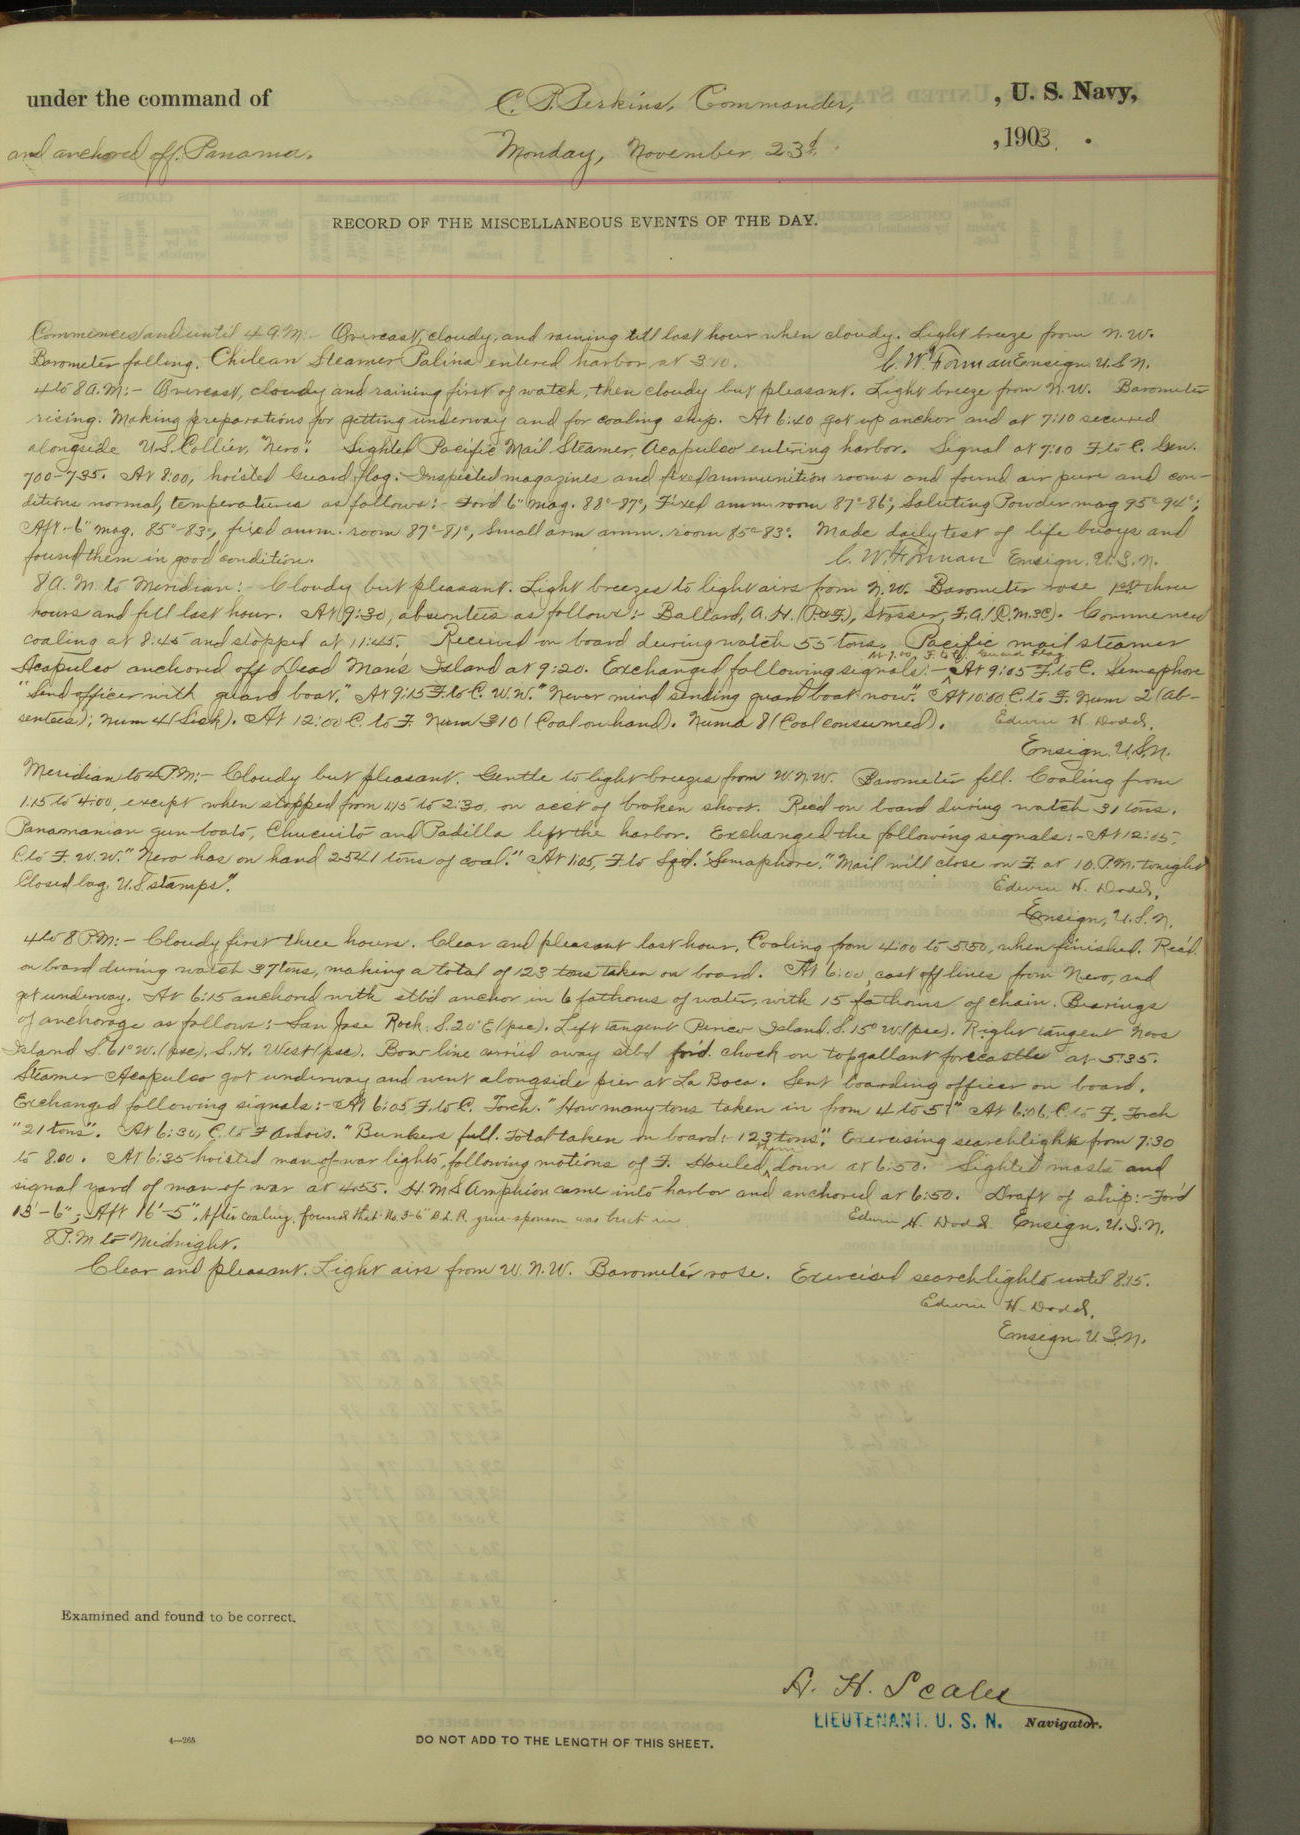 under the command of C. P. Perkins, Commander, , U. S. Navy,
and anchored off Panama. Monday, November 23d. , 1903.
RECORD OF THE MISCELLANEOUS EVENTS OF THE DAY.
Commences and until 4 A.M.- Overcast, cloudy, and raining till last hour when cloudy. Light breeze from N.W.
Barometer falling. Chilean Steamer Palina entered harbor at 3:10. C. W. Forman Ensign U.S.N.
4 to 8 A.M:- Overcast, cloudy and raining first of watch, then cloudy but pleasant. Light breeze from N.W. Barometer
rising. Making preparations for getting underway and for coaling ship. At 6:40 got up anchor and at 7:10 secured
alongside U.S. Collier, "Nero". Sighted Pacific Mail Steamer, Acapulco entering harbor. Signal at 7:00 F. to C. Gen.
700-735. At 8:00, hoisted Guard flag. Inspected magazines and fixed ammunition rooms and found air pure and con-
ditions normal, temperatures as follows:- Ford 6" mag. 88°-87°, Fixed amm. room 87°-86°, Saluting Powder mag 95°-94°;
Aft-6" mag. 85°-83°, fixed amm. room 87°-81°, Small arm amm. room 85°-83°. Made daily test of life buoys and
found them in good condition. C. W. Forman Ensign. U.S.N.
8 A.M. to Meridian:- Cloudy but pleasant. Light breezes to light airs from N.W. Barometer rose 1st three
hours and fell last hour. At 9:30, absentees as follows:- Ballard, A. H. (P&F), Stosser, F. A. (C.M.3C). Commenced
coaling at 8:45 and stopped at 11:45. Received on board during watch 55 tons. Pacific mail steamer
At 9:00, F. to C. Guard Flag
Acapulco anchored off Dead Man's Island at 9:20. Exchanged following signals:- At 9:05 F. to C. Semaphore
"Send officer with guard boat." At 9:15 F. to C. W.W. "Never mind sending guard boat now". At 10:00 C. to F. Num 2 (Ab-
sentees); Num 4 (Sick). At 12:00 C. to F. Num 310 (Coal on hand). Numa 8 (Coal consumed). Edwin H. Dodd,
Ensign. U.S.N.
Meridian to 4 P.M:- Cloudy but pleasant. Gentle to light breezes from W.N.W. Barometer fell. Coaling from
1:15 to 4:00, except when stopped from 1:15 to 2:30, on acct of broken shoot. Recd on board during watch 31 tons.
Panamanian gun-boats, Chucuito and Padilla left the harbor. Exchanged the following signals:- At 12:05,
C. to F. W.W. "Nero has on hand 2541 tons of coal." At 1:05, F. to Sqd. "Semaphore." Mail will close on F. at 10. P.M. tonight
Closed bag, U.S. stamps". Edwin H. Dodd,
Ensign, U.S.N.
4 to 8 P.M:- Cloudy first three hours. Clear and pleasant last hour. Coaling from 4:00 to 5:50, when finished. Rec'd.
on board during watch 37 tons, making a total of 123 tons taken on board. At 6:00, cast off lines from Nero, and
got underway. At 6:15 anchored with stb'd anchor in 6 fathoms of water, with 15 fathoms of chain. Bearings
of anchorage as follows:- San Jose Rock. S. 20° E (psc). Left tangent Perico Island. S. 15° W. (psc). Right tangent Naos
Island S. 61° W. (psc). S.H. West (psc). Bow line carried away stbd for'd chock on topgallant forecastle at 5:35.
Steamer Acapulco got underway and went alongside pier at La Boca. Sent boarding officer on board.
Exchanged following signals:- At 6:05 F. to C. Torch. "How many tons taken in from 4 to 5?" At 6:06, C. to F. Torch
"21 tons". At 6:30, C. to F Ardois. "Bunkers full. Total taken on board: 123 tons". Exercising searchlights from 7:30
to 8:00. At 6:35 hoisted man-of-war lights, following motions of F. Hauled them down at 6:50. Sighted masts and
signal yard of man of war at 4:55. H.M.S. Amphion came into harbor and anchored at 6:50. Draft of ship:- For'd
13'-6"; Aft 16'-5". After coaling, found that No. 3-6" B.L.R. gun-sponson was bent in. Edwin H. Dodd Ensign. U.S.N.
8 P.M to Midnight.
Clear and pleasant. Light airs from W.N.W. Barometer rose. Exercised searchlights until 8:15.
Edwin H. Dodd,
Ensign. U.S.N.
Examined and found to be correct.
A. H. Scales
LIEUTENANT. U. S. N. Navigator.
4—268
DO NOT ADD TO THE LENGTH OF THIS SHEET.